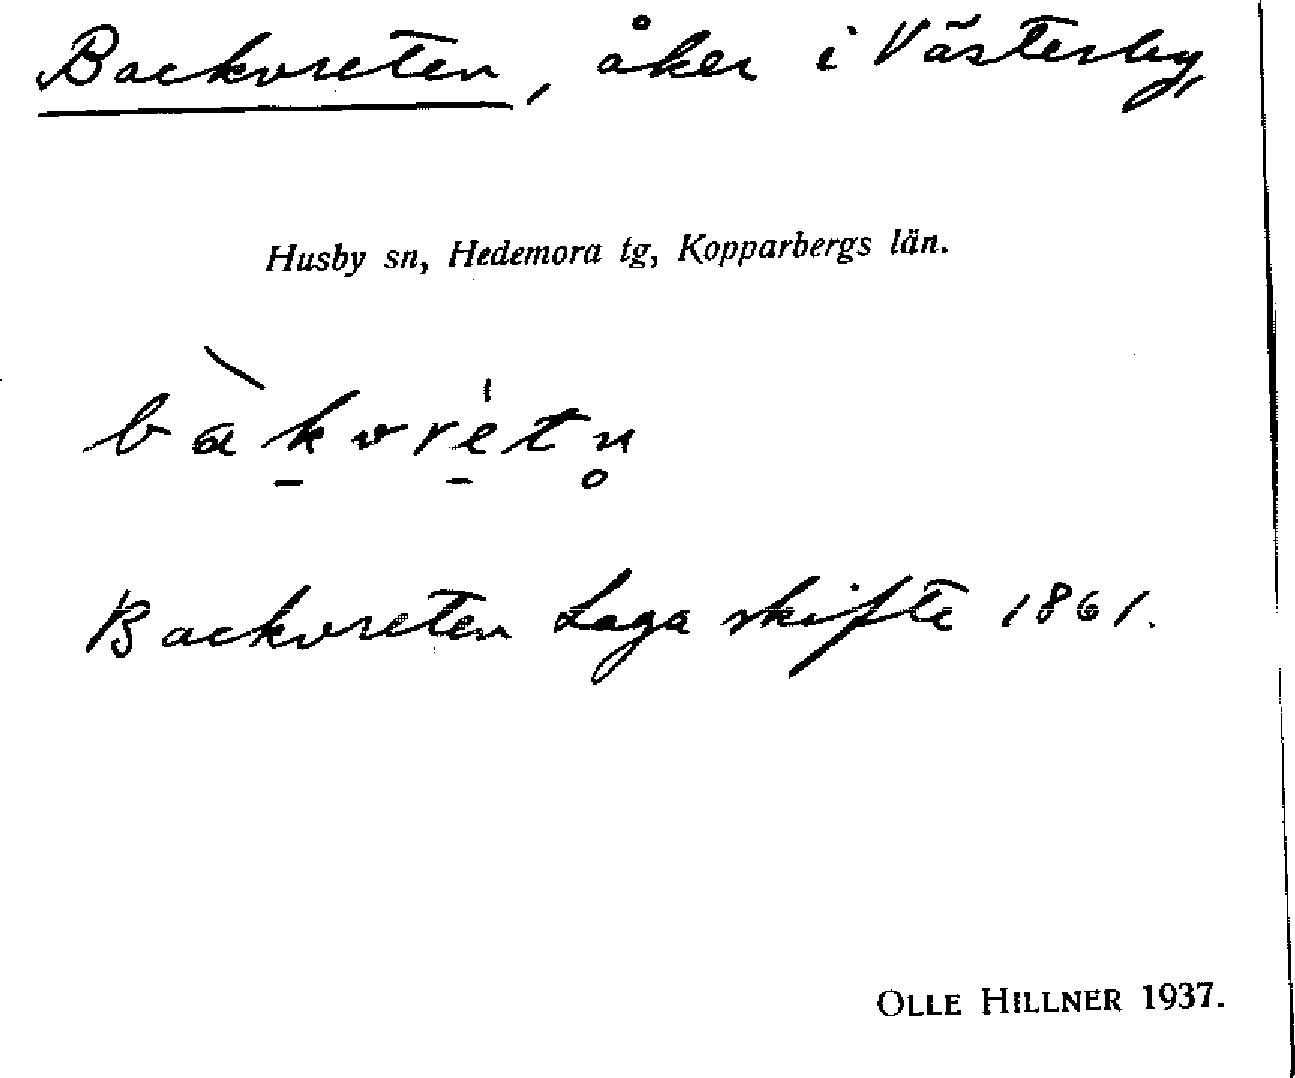 Backvreten, åker i Västerby,
Husby sn, Hedemora tg, Kopparbergs län.
bàk̠vre̠̍tn̥
Backvreten Laga skifte 1861.
OLLE HILLNER 1937.